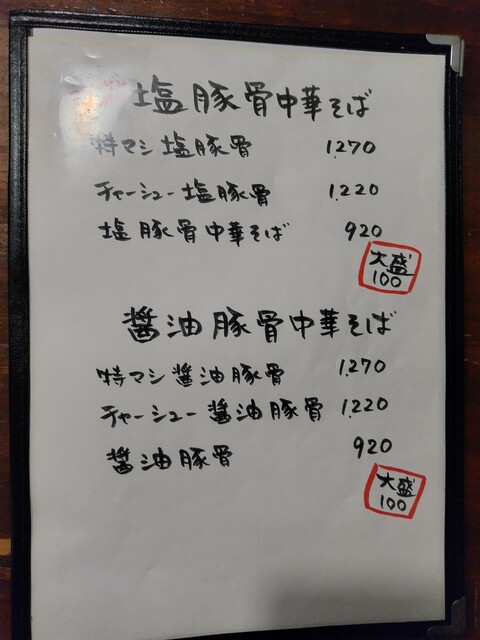 塩豚骨中華そば
特マシ塩豚骨 1,270
チャーシュー塩豚骨 1,220
塩豚骨中華そば 920
大盛
100
醤油豚骨中華そば
特マシ醤油豚骨 1,270
チャーシュー醤油豚骨 1,220
醤油豚骨 920
大盛
100